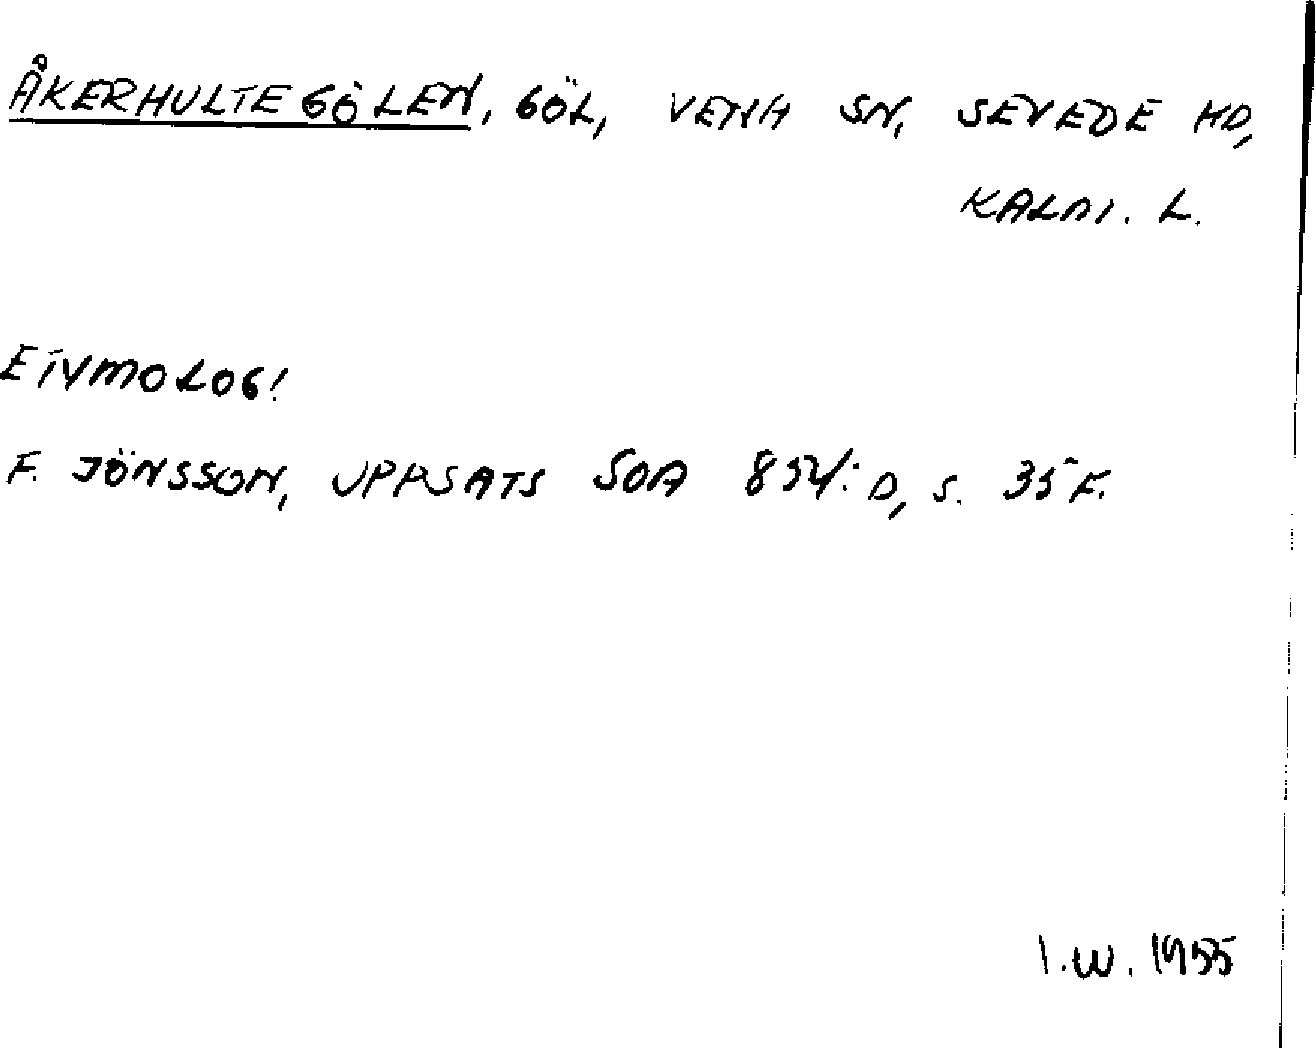 ÅKERHULTEGÖLEN, GÖL, VENA SN, SEVEDE HD,
KALM. L.
ETYMOLOGI
F. JÖNSSON, UPPSATS SOA 854:D, S. 35 F.
I.W. 1955